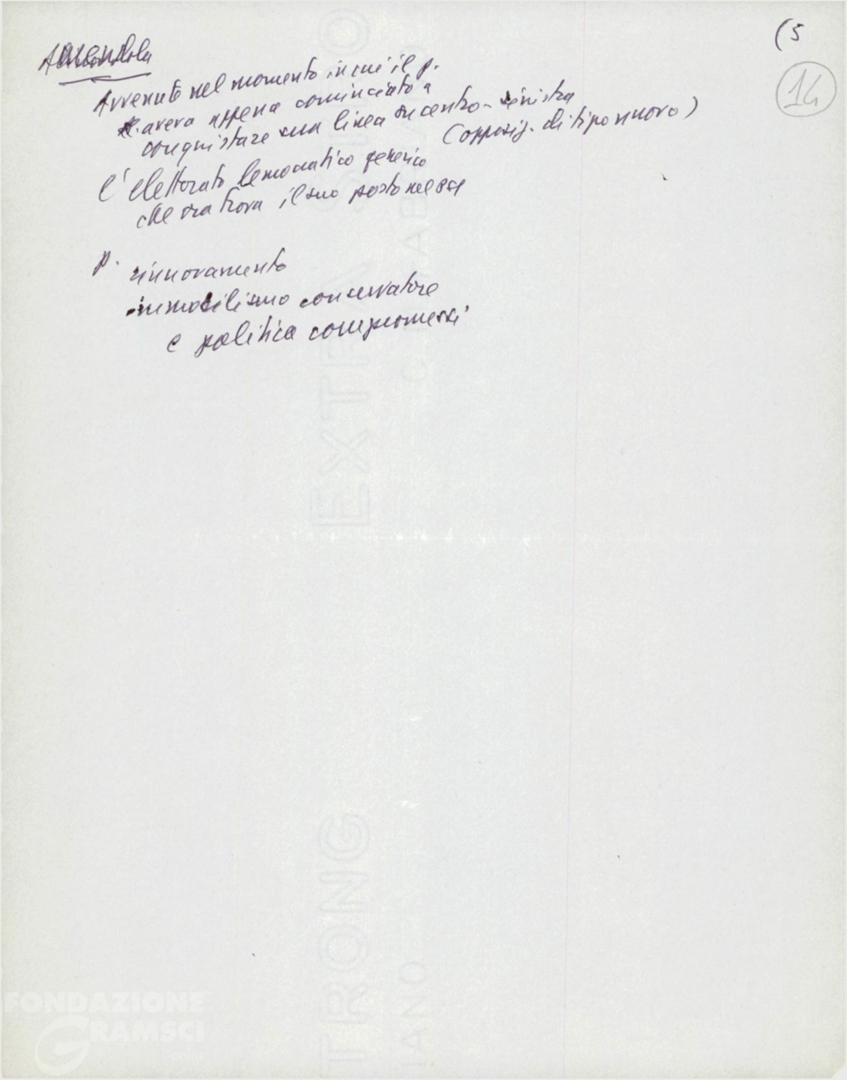 (5
14
Amendola
Avvenuto nel momento in cui il p.
aveva appena cominciato a
conquistare una linea su centro-sinistra
(opposiz. di tipo nuovo)
l'elettorato democratico generico
che ora trova il suo posto nel
p. rinnovamento
immobilismo conservatore
e politica compromessi
EXTRA STRONG
FONDAZIONE
GRAMSCI